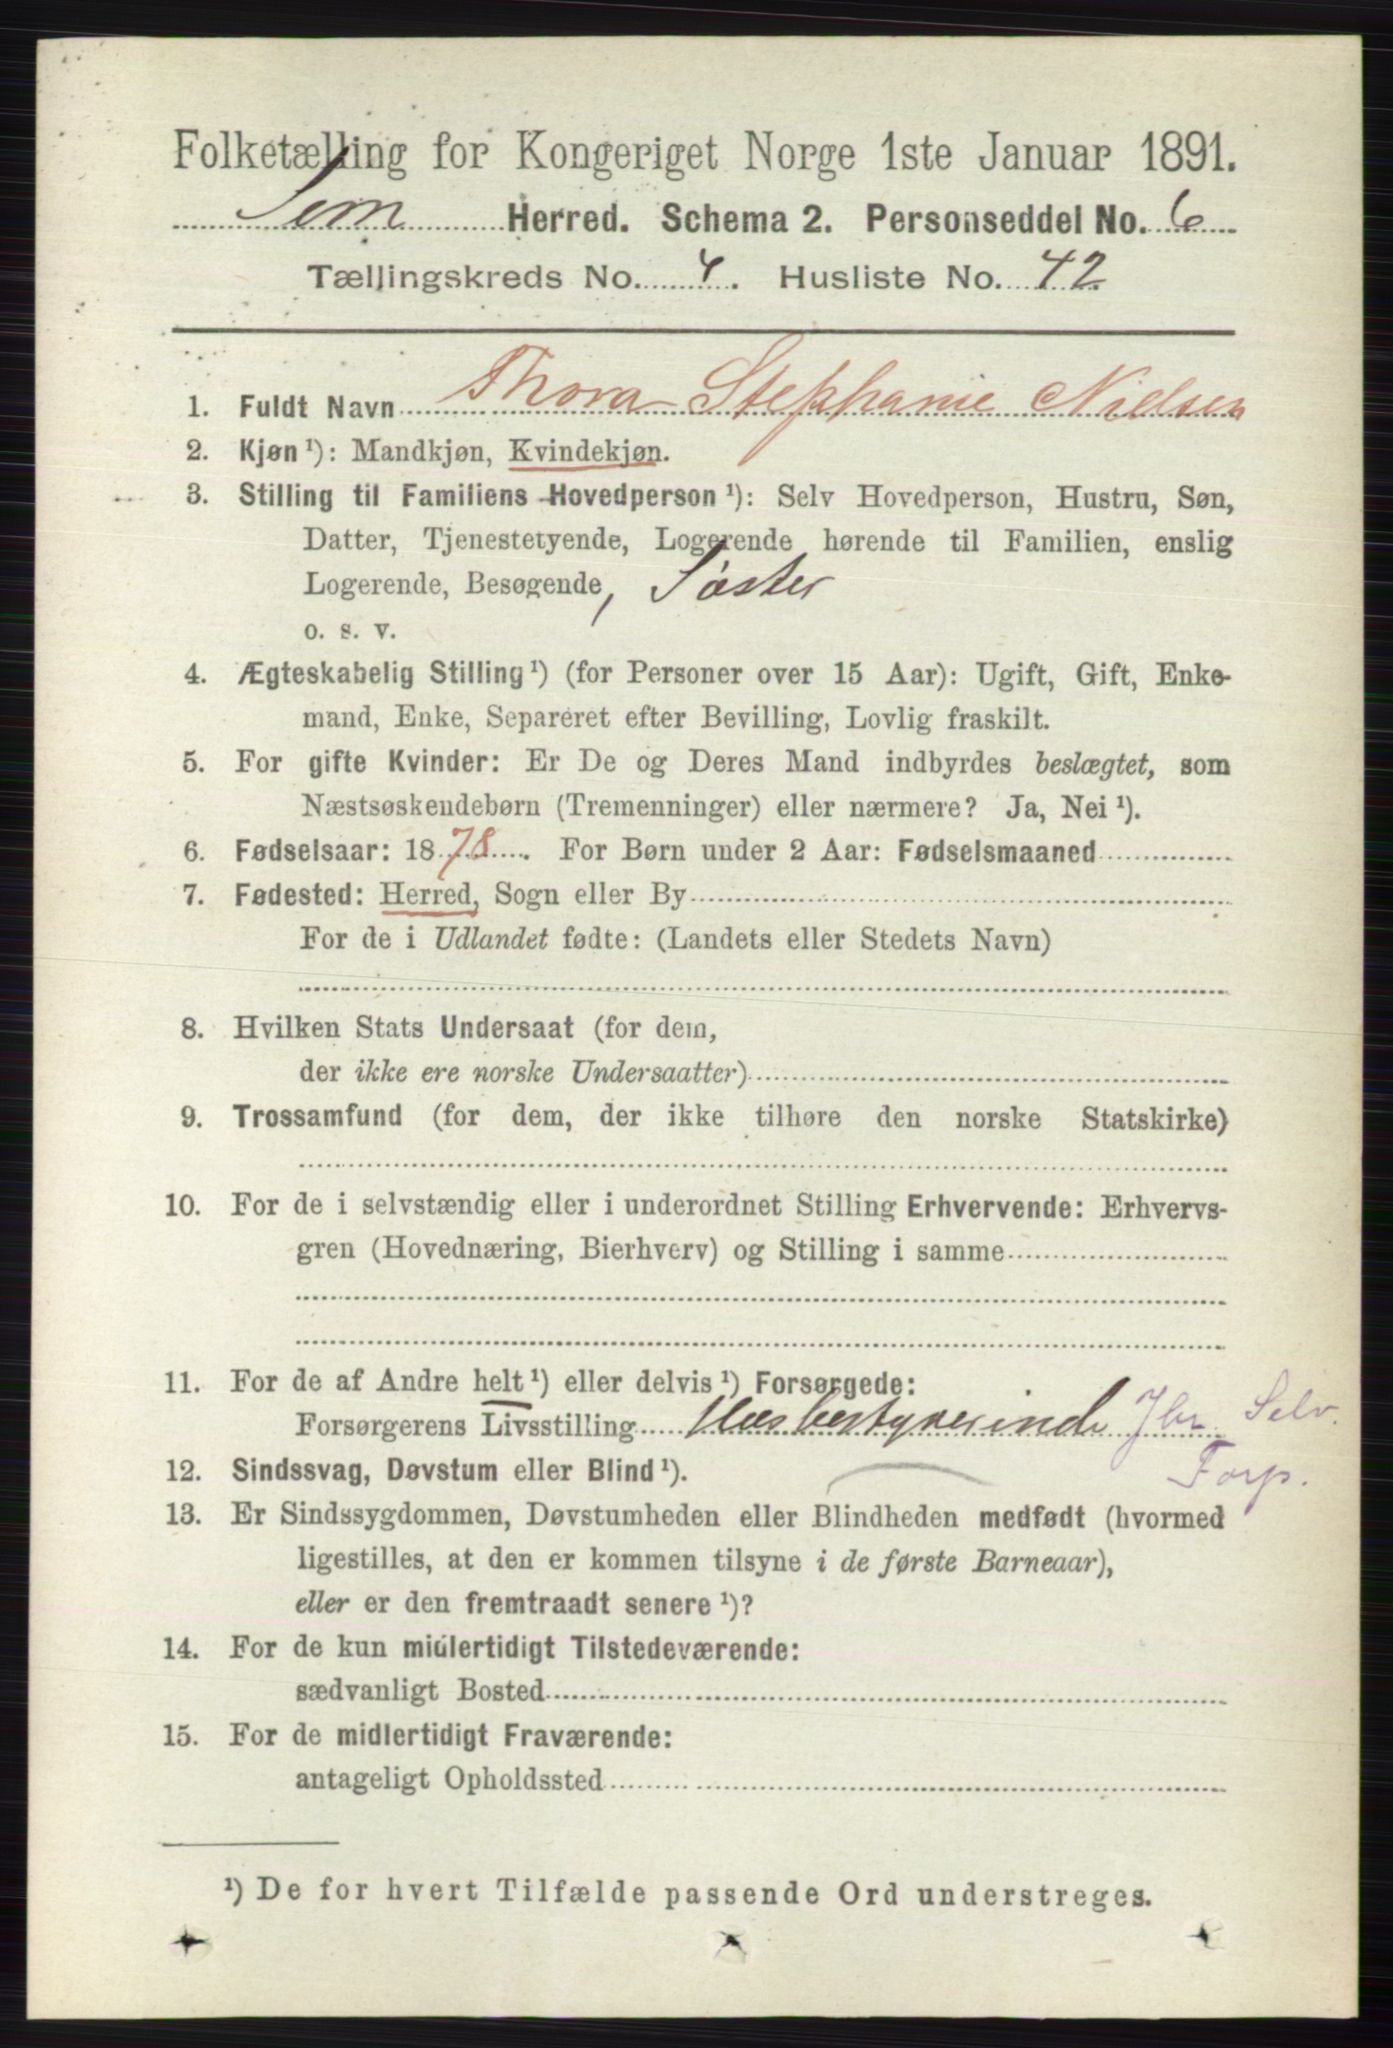 Folketælling for Kongeriget Norge 1ste Januar 1891.
Sem Herred. Schema 2. Personseddel No. 6
Tællingskreds No. 4. Husliste No. 42
1. Fuldt Navn Thora Stephanie Nielsen
2. Kjøn ¹): Mandkjøn, Kvindekjøn.
3. Stilling til Familiens Hovedperson ¹): Selv Hovedperson, Hustru, Søn,
Datter, Tjenestetyende, Logerende hørende til Familien, enslig
Logerende, Besøgende, Søster
o. s. v.
4. Ægteskabelig Stilling ¹) (for Personer over 15 Aar): Ugift, Gift, Enke-
mand, Enke, Separeret efter Bevilling, Lovlig fraskilt.
5. For gifte Kvinder: Er De og Deres Mand indbyrdes beslægtet, som
Næstsøskendebørn (Tremenninger) eller nærmere? Ja, Nei ¹).
6. Fødselsaar: 1878. For Børn under 2 Aar: Fødselsmaaned
7. Fødested: Herred, Sogn eller By
For de i Udlandet fødte: (Landets eller Stedets Navn)
8. Hvilken Stats Undersaat (for dem,
der ikke ere norske Undersaatter)
9. Trossamfund (for dem, der ikke tilhøre den norske Statskirke)
10. For de i selvstændig eller i underordnet Stilling Erhvervende: Erhvervs-
gren (Hovednæring, Bierhverv) og Stilling i samme
11. For de af Andre helt ¹) eller delvis ¹) Forsørgede:
Forsørgerens Livsstilling Husbestyrerinde Selv.
Forp.
12. Sindssvag, Døvstum eller Blind ¹).
13. Er Sindssygdommen, Døvstumheden eller Blindheden medfødt (hvormed
ligestilles, at den er kommen tilsyne i de første Barneaar),
eller er den fremtraadt senere ¹)?
14. For de kun midlertidigt Tilstedeværende:
sædvanligt Bosted
15. For de midlertidigt Fraværende:
antageligt Opholdssted
¹) De for hvert Tilfælde passende Ord understreges.